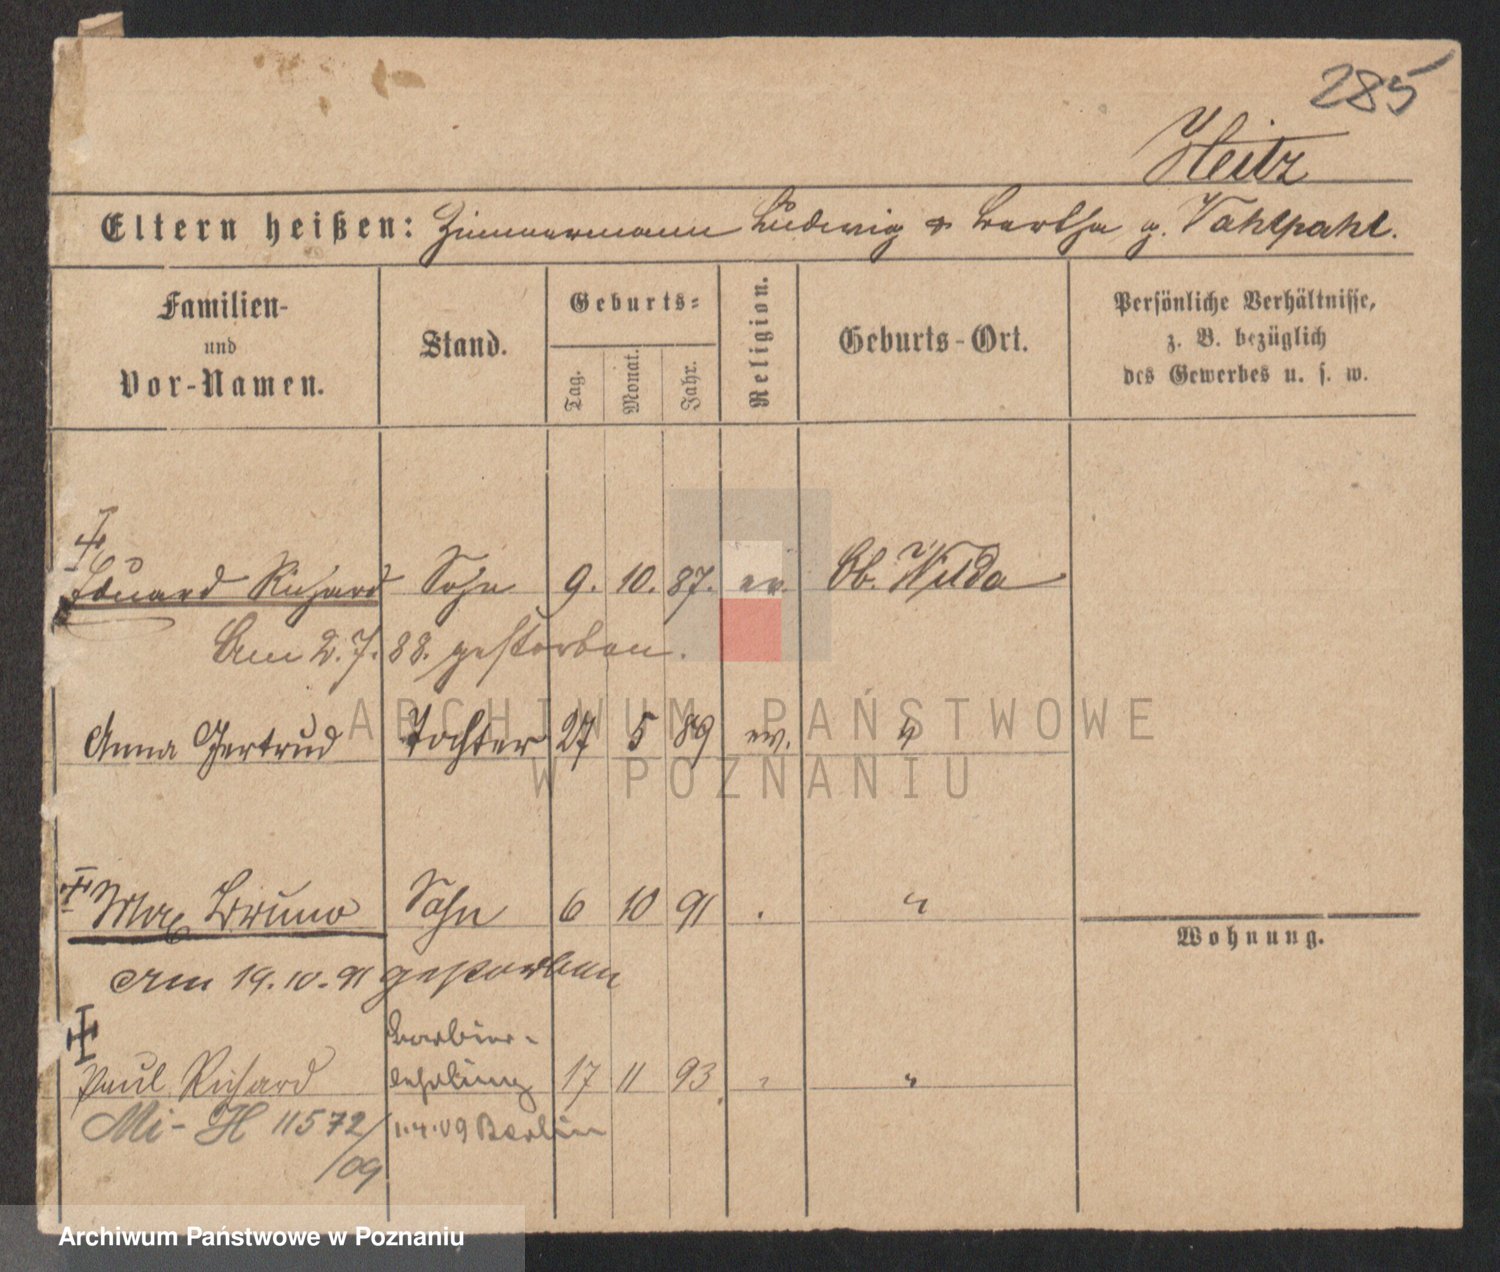 285
Heitz
Eltern heißen: Zimmermann Ludwig & Bertha g. Vahlpahl.
Familien-
und
Vor-Namen.
Stand.
Geburts-
Tag.
Monat.
Jahr.
Religion.
Geburts-Ort.
Persönliche Verhältnisse,
z. B. bezüglich
des Gewerbes u. s. w.
Eduard Richard Sohn 9. 10. 87. ev. Ob. Wilda
Am 2. 7. 88. gestorben.
Anna Gertrud Tochter 27 5 89 ev. "
Max Bruno Sohn 6 10 91 . "
Wohnung.
Am 19. 10. 91 gestorben
Barbier-
Paul Richard lehrling 17 11 93 " "
Mi- H 11572/09 1.4.09 Berlin
ARCHIWUM PAŃSTWOWE
W POZNANIU
Archiwum Państwowe w Poznaniu